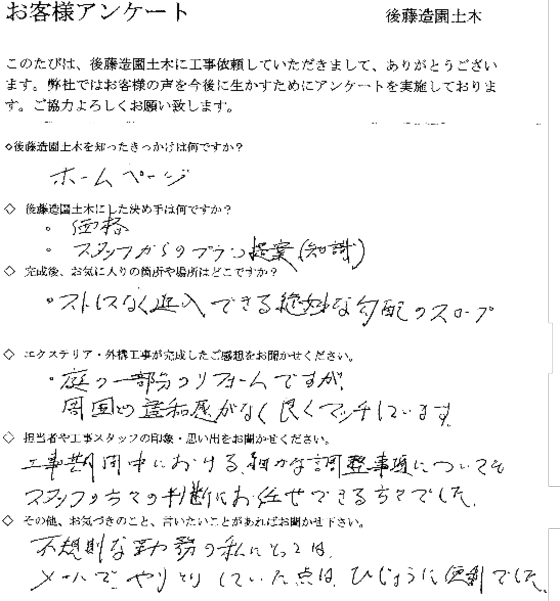 お客様アンケート
後藤造園土木
このたびは、後藤造園土木に工事依頼していただきまして、ありがとうござい
ます。弊社ではお客様の声を今後に生かすためにアンケートを実施しておりま
す。ご協力よろしくお願い致します。
◇後藤造園土木を知ったきっかけは何ですか？
ホームページ
◇ 後藤造園土木にした決め手は何ですか？
・価格
・スタッフからのプラン提案(知識)
◇ 完成後、お気に入りの箇所や場所はどこですか？
・ストレスなく進入できる絶妙な勾配のスロープ
◇ エクステリア・外構工事が完成したご感想をお聞かせください。
・庭の一部分のリフォームですが、
周囲との違和感がなく良くマッチしています。
◇ 担当者や工事スタッフの印象・思い出をお聞かせください。
工事期間中における、細かな調整事項についても
スタッフの方々の判断にお任せできる方々でした。
◇ その他、お気づきのこと、言いたいことがあればお聞かせ下さい。
不規則な勤務の私にとっては、
メールで、やりとりしていた点は、ひじょうに便利でした。